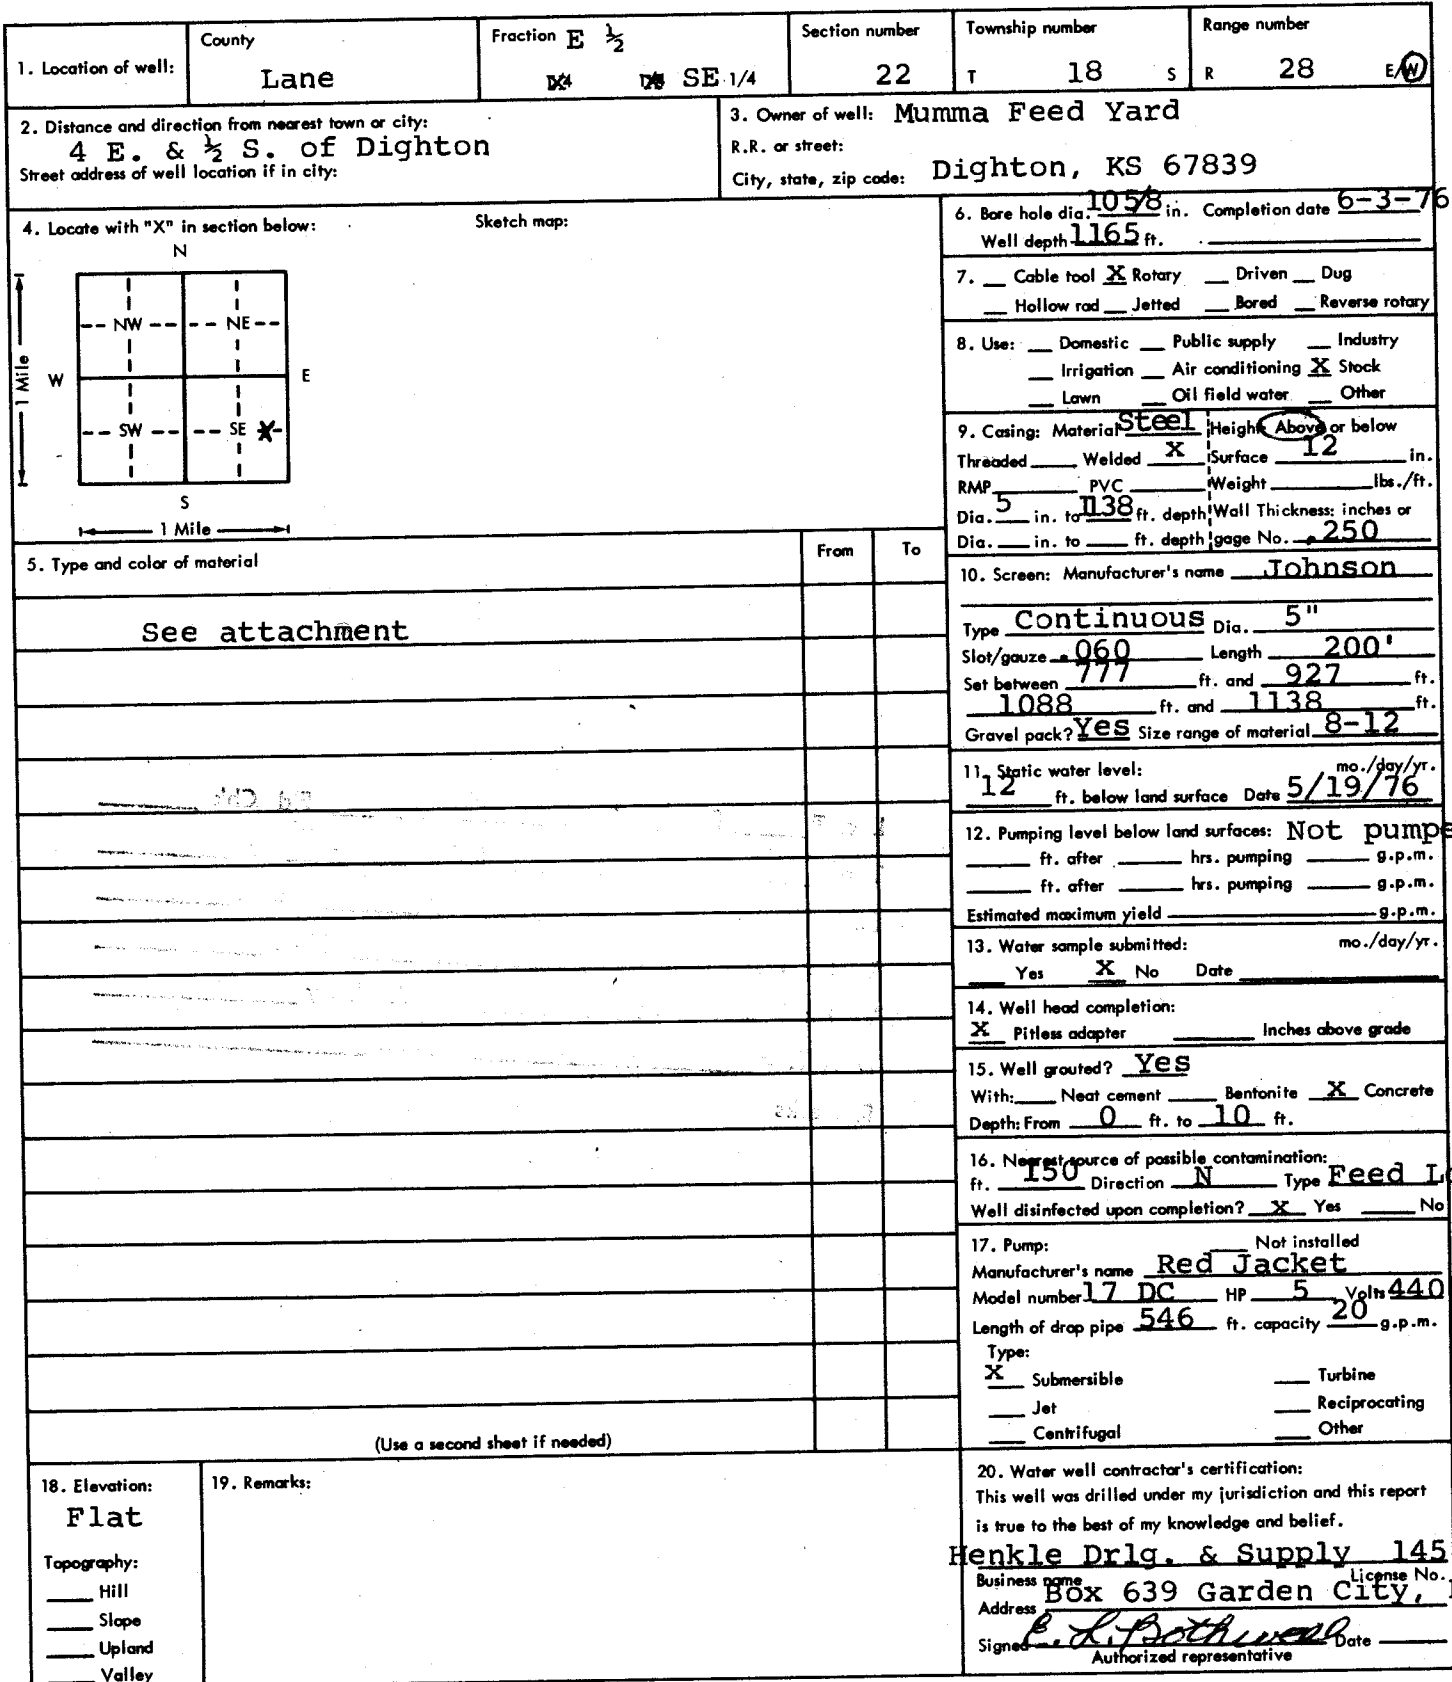 County
Fraction E ½
Section number
Township number
Range number
1. Location of well:
Lane
SE 1/4
22
T 18 S
R 28 E/W
2. Distance and direction from nearest town or city:
4 E. & ½ S. of Dighton
Street address of well location if in city:
3. Owner of well: Mumma Feed Yard
R.R. or street:
City, state, zip code: Dighton, KS 67839
4. Locate with "X" in section below:
Sketch map:
N
NW NE
W E
1 Mile
SW SE X
S
1 Mile
5. Type and color of material
From To
See attachment
(Use a second sheet if needed)
6. Bore hole dia. 10 5/8 in. Completion date 6-3-76
Well depth 1165 ft.
7. __ Cable tool X Rotary __ Driven __ Dug
__ Hollow rod __ Jetted __ Bored __ Reverse rotary
8. Use: __ Domestic __ Public supply __ Industry
__ Irrigation __ Air conditioning X Stock
__ Lawn __ Oil field water __ Other
9. Casing: Material Steel Height Above or below
Threaded __ Welded X Surface 12 in.
RMP __ PVC __ Weight __ lbs./ft.
Dia. 5 in. to 1138 ft. depth Wall Thickness: inches or
Dia. __ in. to __ ft. depth gage No. .250
10. Screen: Manufacturer's name Johnson
Type Continuous Dia. 5"
Slot/gauze .060 Length 200'
Set between 777 ft. and 927 ft.
1088 ft. and 1138 ft.
Gravel pack? Yes Size range of material 8-12
11. Static water level: mo./day/yr.
12 ft. below land surface Date 5/19/76
12. Pumping level below land surfaces: Not pumpe
__ ft. after __ hrs. pumping __ g.p.m.
__ ft. after __ hrs. pumping __ g.p.m.
Estimated maximum yield __ g.p.m.
13. Water sample submitted: mo./day/yr.
__ Yes X No Date __
14. Well head completion:
X Pitless adapter __ Inches above grade
15. Well grouted? Yes
With: __ Neat cement __ Bentonite X Concrete
Depth: From 0 ft. to 10 ft.
16. Nearest source of possible contamination:
ft. 150 Direction N Type Feed Lo
Well disinfected upon completion? X Yes __ No
17. Pump: __ Not installed
Manufacturer's name Red Jacket
Model number 17 DC HP 5 Volts 440
Length of drop pipe 546 ft. capacity 20 g.p.m.
Type:
X Submersible __ Turbine
__ Jet __ Reciprocating
__ Centrifugal __ Other
18. Elevation:
Flat
Topography:
__ Hill
__ Slope
__ Upland
__ Valley
19. Remarks:
20. Water well contractor's certification:
This well was drilled under my jurisdiction and this report
is true to the best of my knowledge and belief.
Henkle Drlg. & Supply 145
Business name License No.
Address Box 639 Garden City,
Signed E. L. Bothwell Date __
Authorized representative